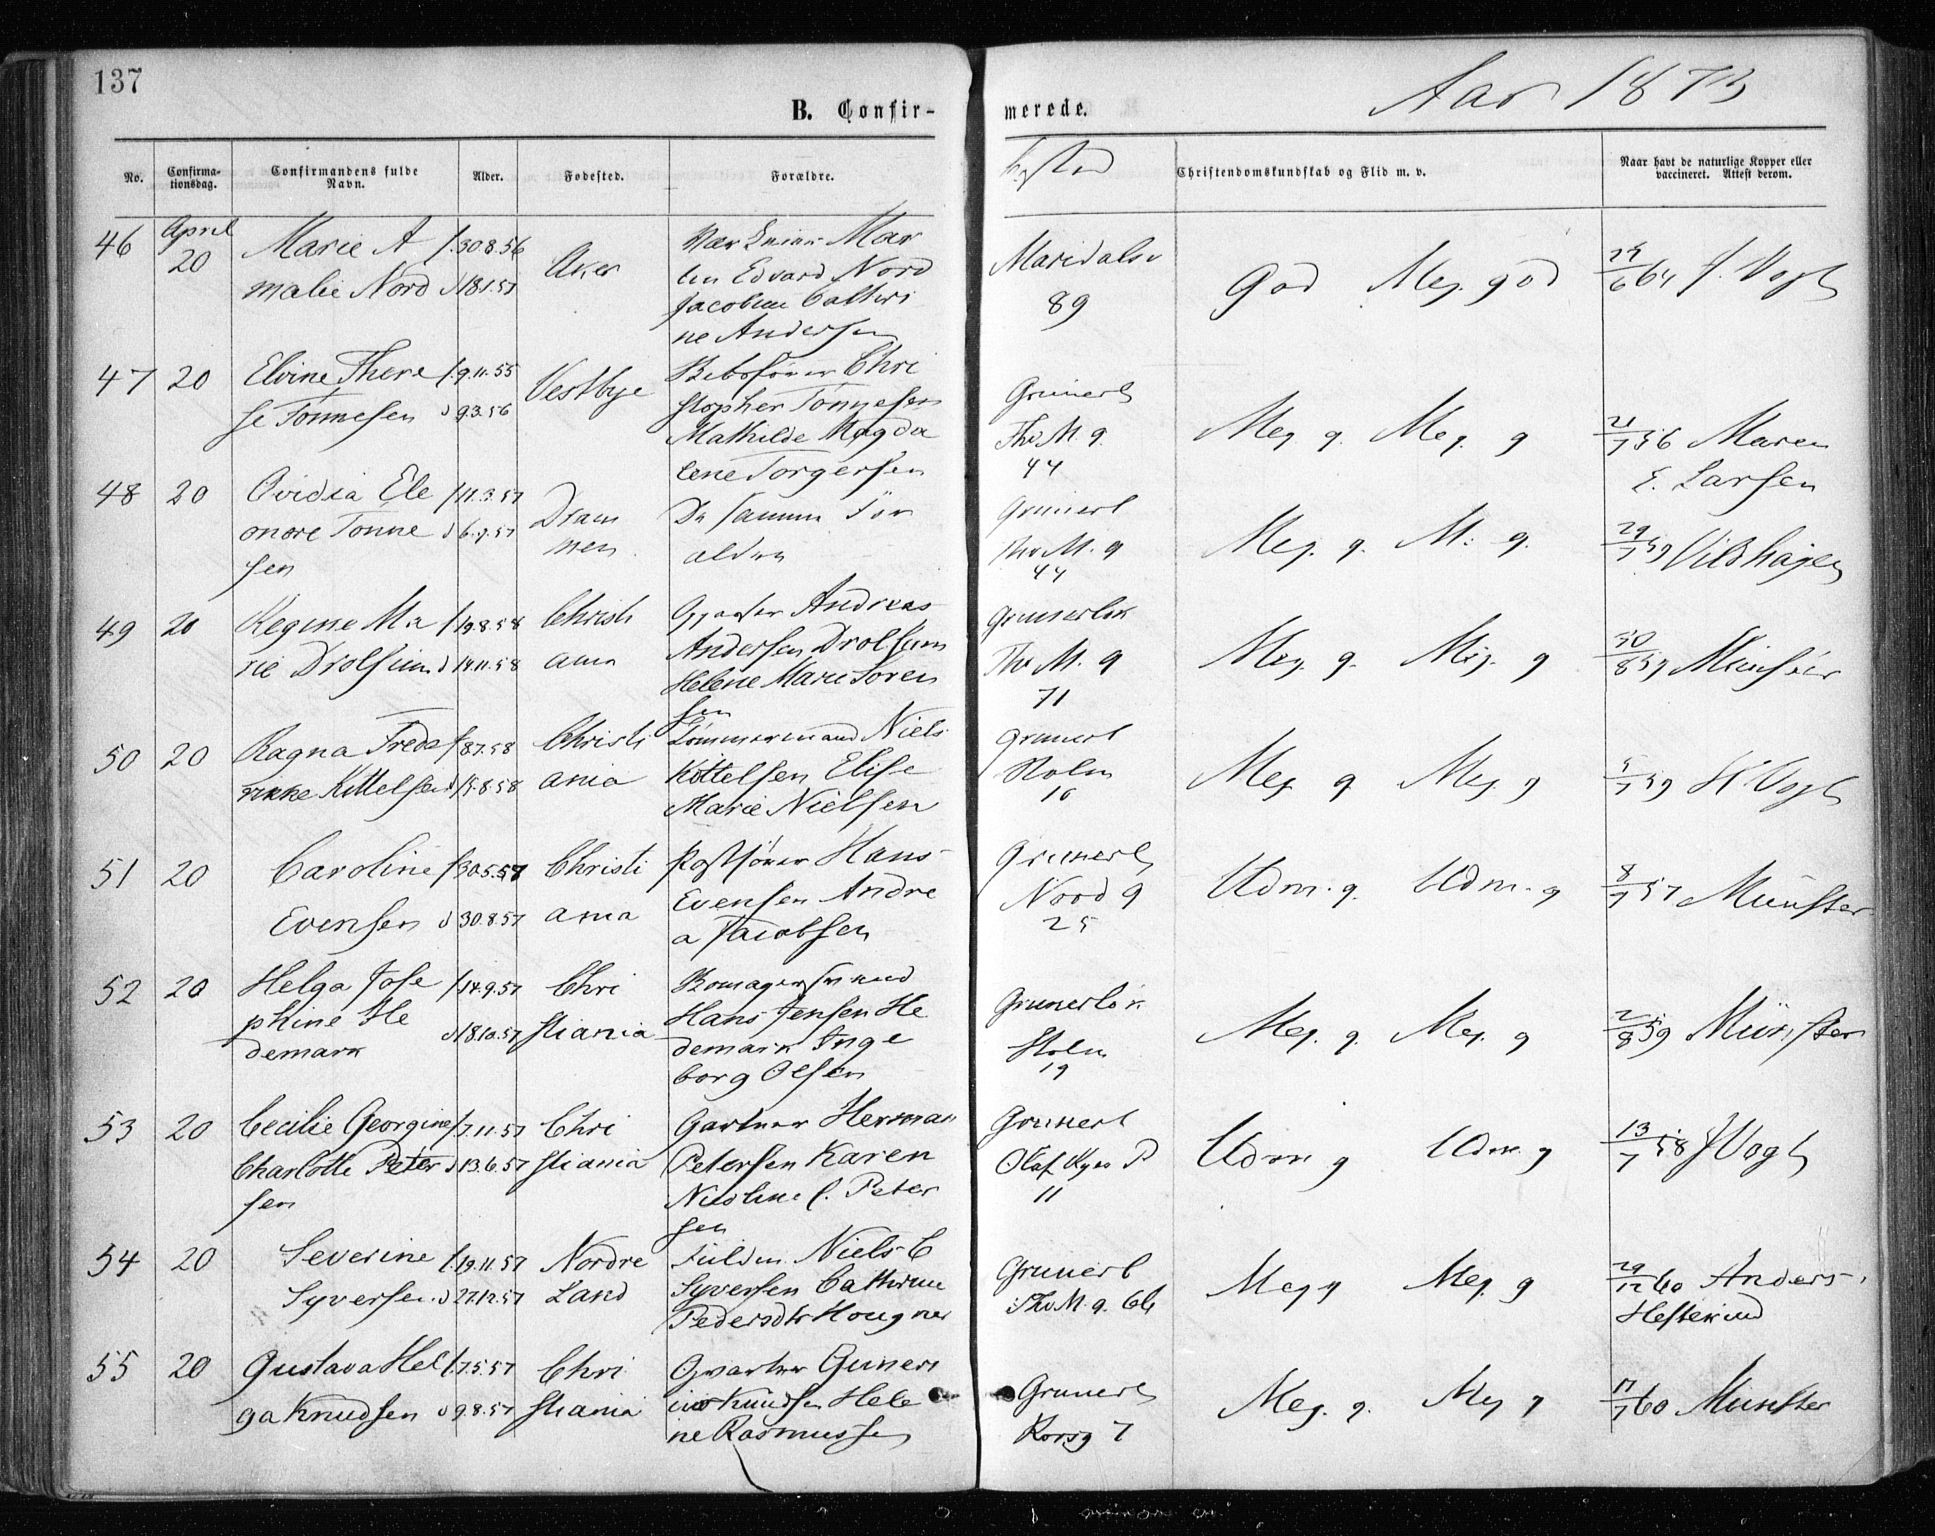 137
B. Confir-
merede.
Aar 1873
No.
Confirma-
tionsdag.
Confirmandens fulde
Navn.
Alder.
Fødested.
Forældre.
Bosted
Christendomskundskab og Flid m. v.
Naar havt de naturlige Kopper eller
vaccineret. Attest derom.
46 April 20
Marie A
malie Nord
f. 30.8.56
d 18.1.57
Aker
Mar
tin Edvard Nord
Jacobine Cathri
ne Andersen
Maridalsv
89
God Meg. god
29/6 64 J. Vogt
47 20
Elvine There
se Tønnesen
f. 9.11.55
d 9.3.56
Vestbye
Chri
stopher Tønnesen
Mathilde Magda
lene Torgersen
Grünerl
Thv M. g.
44
Meg. g. Meg. g
21/7 56 Maren
E. Larsen
48 20
Ovidia Ele
onore Tønne
sen
f 11.3.57
d 6.7.57
Dram
men
De samme For
ældre
Grünerl
Thv M. g
44
Meg. g. M. g.
29/7 59 Vibshagen
49 20
Regine Ma
rie Drolsum
f 19.8.58
d 14.11.58
Christi
ania
Andreas
Andersen Drolsum
Helene Marie Søren
sen
Grünerløk
Thv M. g
71
Meg. g. Meg. g
30/8 59 Münster
50 20
Ragna Frede
rikke Kittelsen
f 8.7.58
d 15.8.58
Christi
ania
Tømmermand Niels
Kittelsen Elise
Marie Nielsen
Grünerl
Holm
10
Meg g Meg g
5/7 59 H Vogt
51 20
Caroline
Evensen
f 30.5.57
d 30.8.57
Christi
ania
Postfører Hans
Evensen Andre
a Jacobsen
Grünerl
Nord g
25
Udm. g. Udm. g
8/7 57 Münster
52 20
Helga Jose
phine He
demark
f 14.9.57
d 18.10.57
Chri
stiania
Hans Jensen He
demark Inge
borg Olsen
Grünerløk
Holm
19
Meg. g. Meg. g
2/8 59 Münster
53 20
Cecilie Georgine
Charlotte Peter
sen
f 7.11.57
d 13.6.57
Chri
stiania
Gartner Herman
Petersen Karen
Nicoline C. Peter
sen
Grünerl
Olaf Ryes P
11
Udm g Udm. g
13/7 58 J Vogt
54 20
Severine
Syversen
f. 19.11.57
d 27.12.57
Nordre
Land
Niels C
Syversen Cathrine
Pedersdtr Hougner
Grünerl
Thv M. g. 66
Meg g Meg. g
29/12 60 Anders
Hesterud
55 20
Gustava Hel
ga Knudsen
f. 7.5.57
d 9.8.57
Chri
stiania
Guneri
us Knudsen Hele
ne Rasmussen
Grünerl
Korsg 7
Meg. g. Meg g
17/7 60 Münster